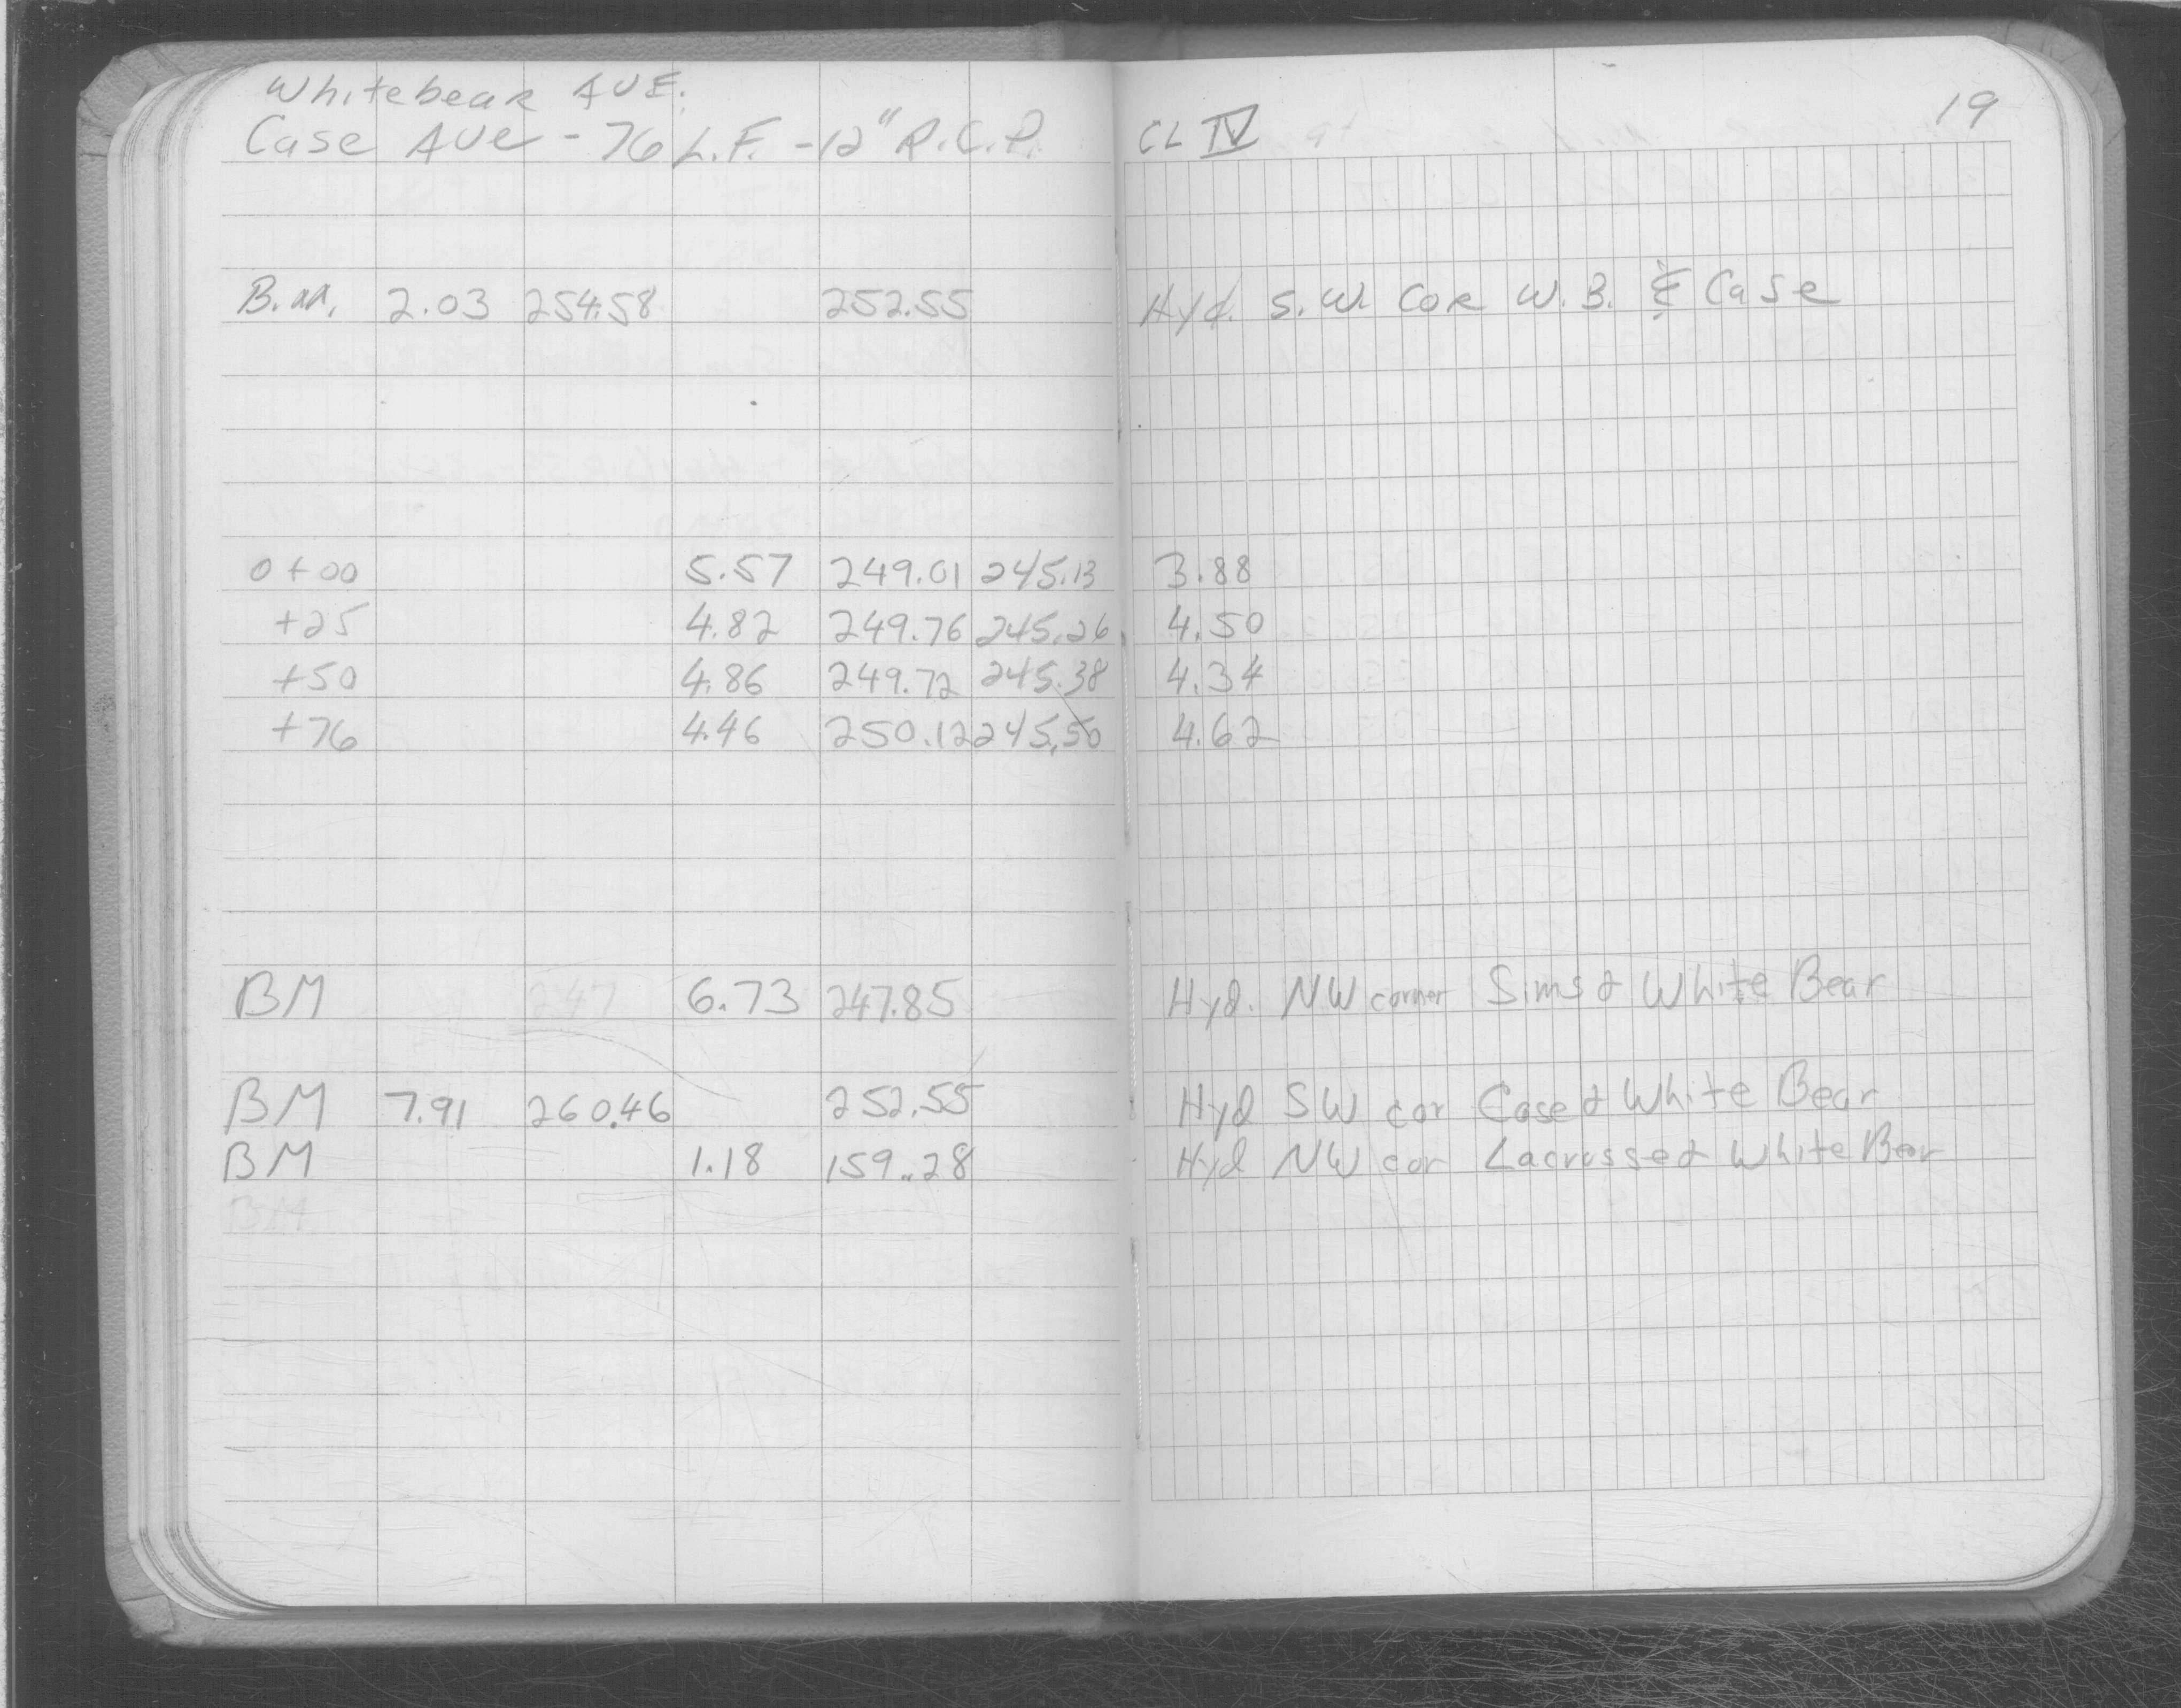 Whitebear AVE.
Case AVE - 76 L.F. - 12" R.C.P. CL IV
19
B.M. 2.03 254.58 252.55 Hyd. S.W. Cor W.B. & Case
0+00 5.57 249.01 245.13 3.88
+25 4.82 249.76 245.26 4.50
+50 4.86 249.72 245.38 4.34
+76 4.46 250.12 245.50 4.62
BM 247 6.73 247.85 Hyd. NW corner Sims & White Bear
BM 7.91 260.46 252.55 Hyd SW cor Case & White Bear
BM 1.18 159.28 Hyd NW cor Lacrosse & White Bear
BM